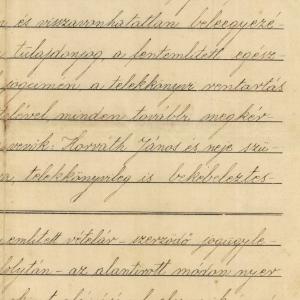 n és visszavonhatatlan beleegyezé-
tulajdonjog a fentemlitett egész-
jogcimen a telekkönyvi rentartás
tésével minden további megkér-
venik: Horváth János és neje szü-
n telekkönyvileg is bekebeleztes-
emlitett vételár-szerződő jogügyle-
folytán - az alantirott módon nyer